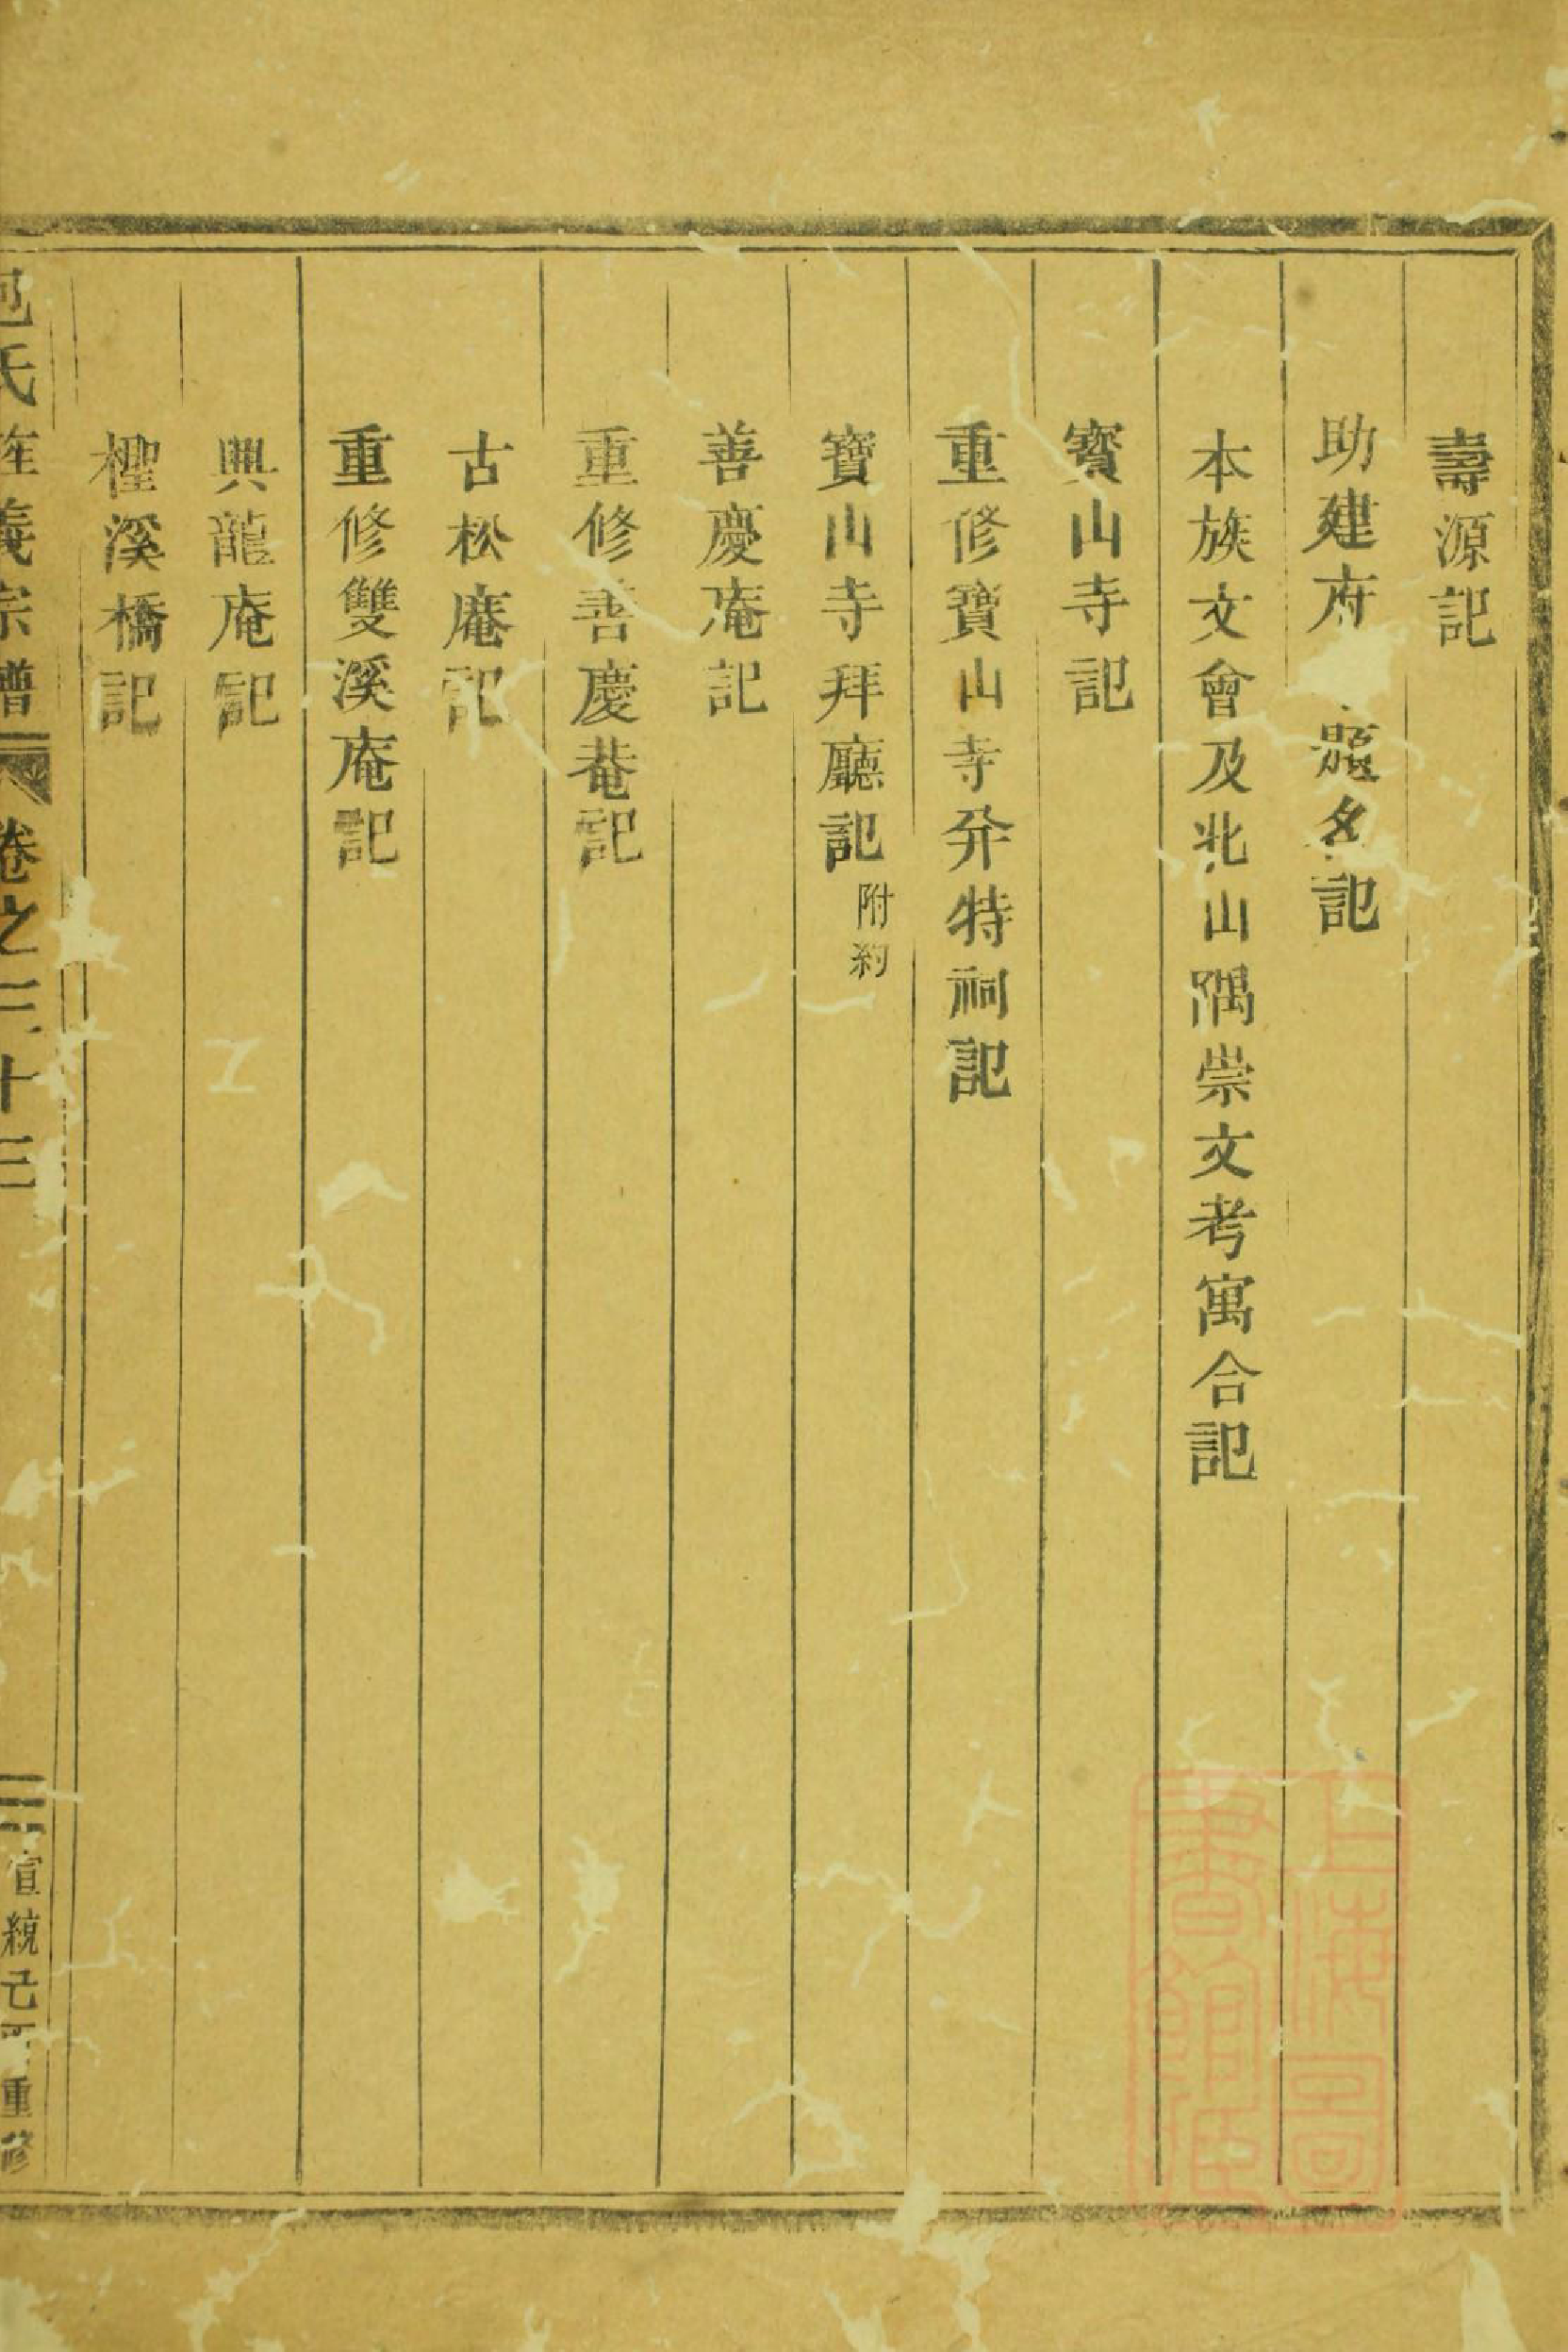 壽源記
助建府題名記
本族文會及北山隅崇文考寓合記
寶山寺記
重修寶山寺并特祠記
寶山寺拜廳記附約
善慶庵記
重修善慶菴記
古松庵記
重修雙溪庵記
興龍庵記
檉溪橋記
氏旌義宗譜 卷之三十三 宣統己酉重修
上海圖書館藏